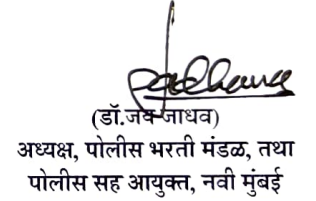 (डॉ.जय जाधव)
अध्यक्ष, पोलीस भरती मंडळ, तथा
पोलीस सह आयुक्त, नवी मुंबई